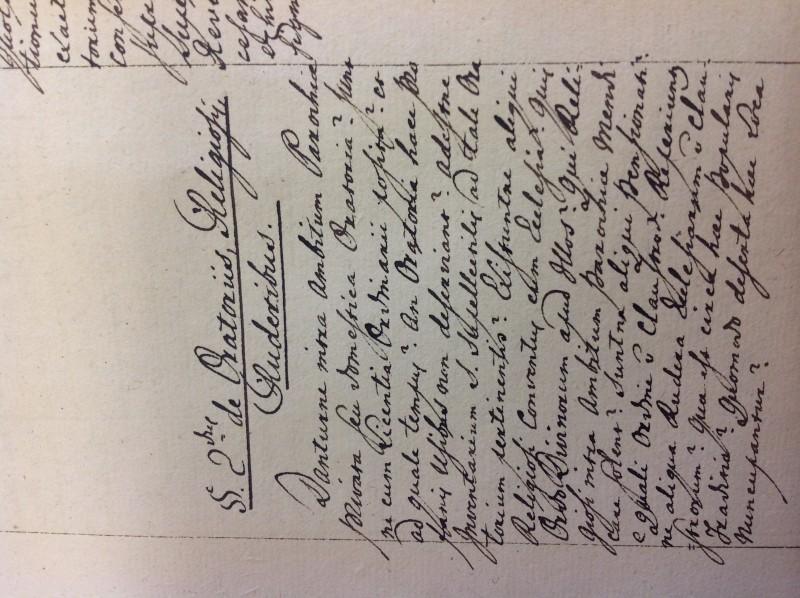 §. 2dus de Oratoriis, Religiosis,
Ruderibus.
Danturne intra ambitum Parochiæ
privata seu domestica Oratoria? sunt
ne cum licentia Ordinarii posita? et
ad quale tempus? An Oratoria hæc pro
fanis usibus non deserviant? Adestne
Inventarium S. Supellectilis ad tale Ora
torium pertinentis? Existuntne aliqui
Religiosi Conventus cum Ecclesia? quis
Ordo Divinorum apud Illos? Qui Reli-
giosi intra Ambitum Parochiæ Mendi
care solent? Suntne aliqui Pensionati?
e quali Ordine v Claustro? Reperiunt
ne aliqua Rudera Ecclesiarum v Clau-
strorum? Quæ est circa hæc Popularis
Traditio? Quomodo deserta hæc loca
nuncupantur?